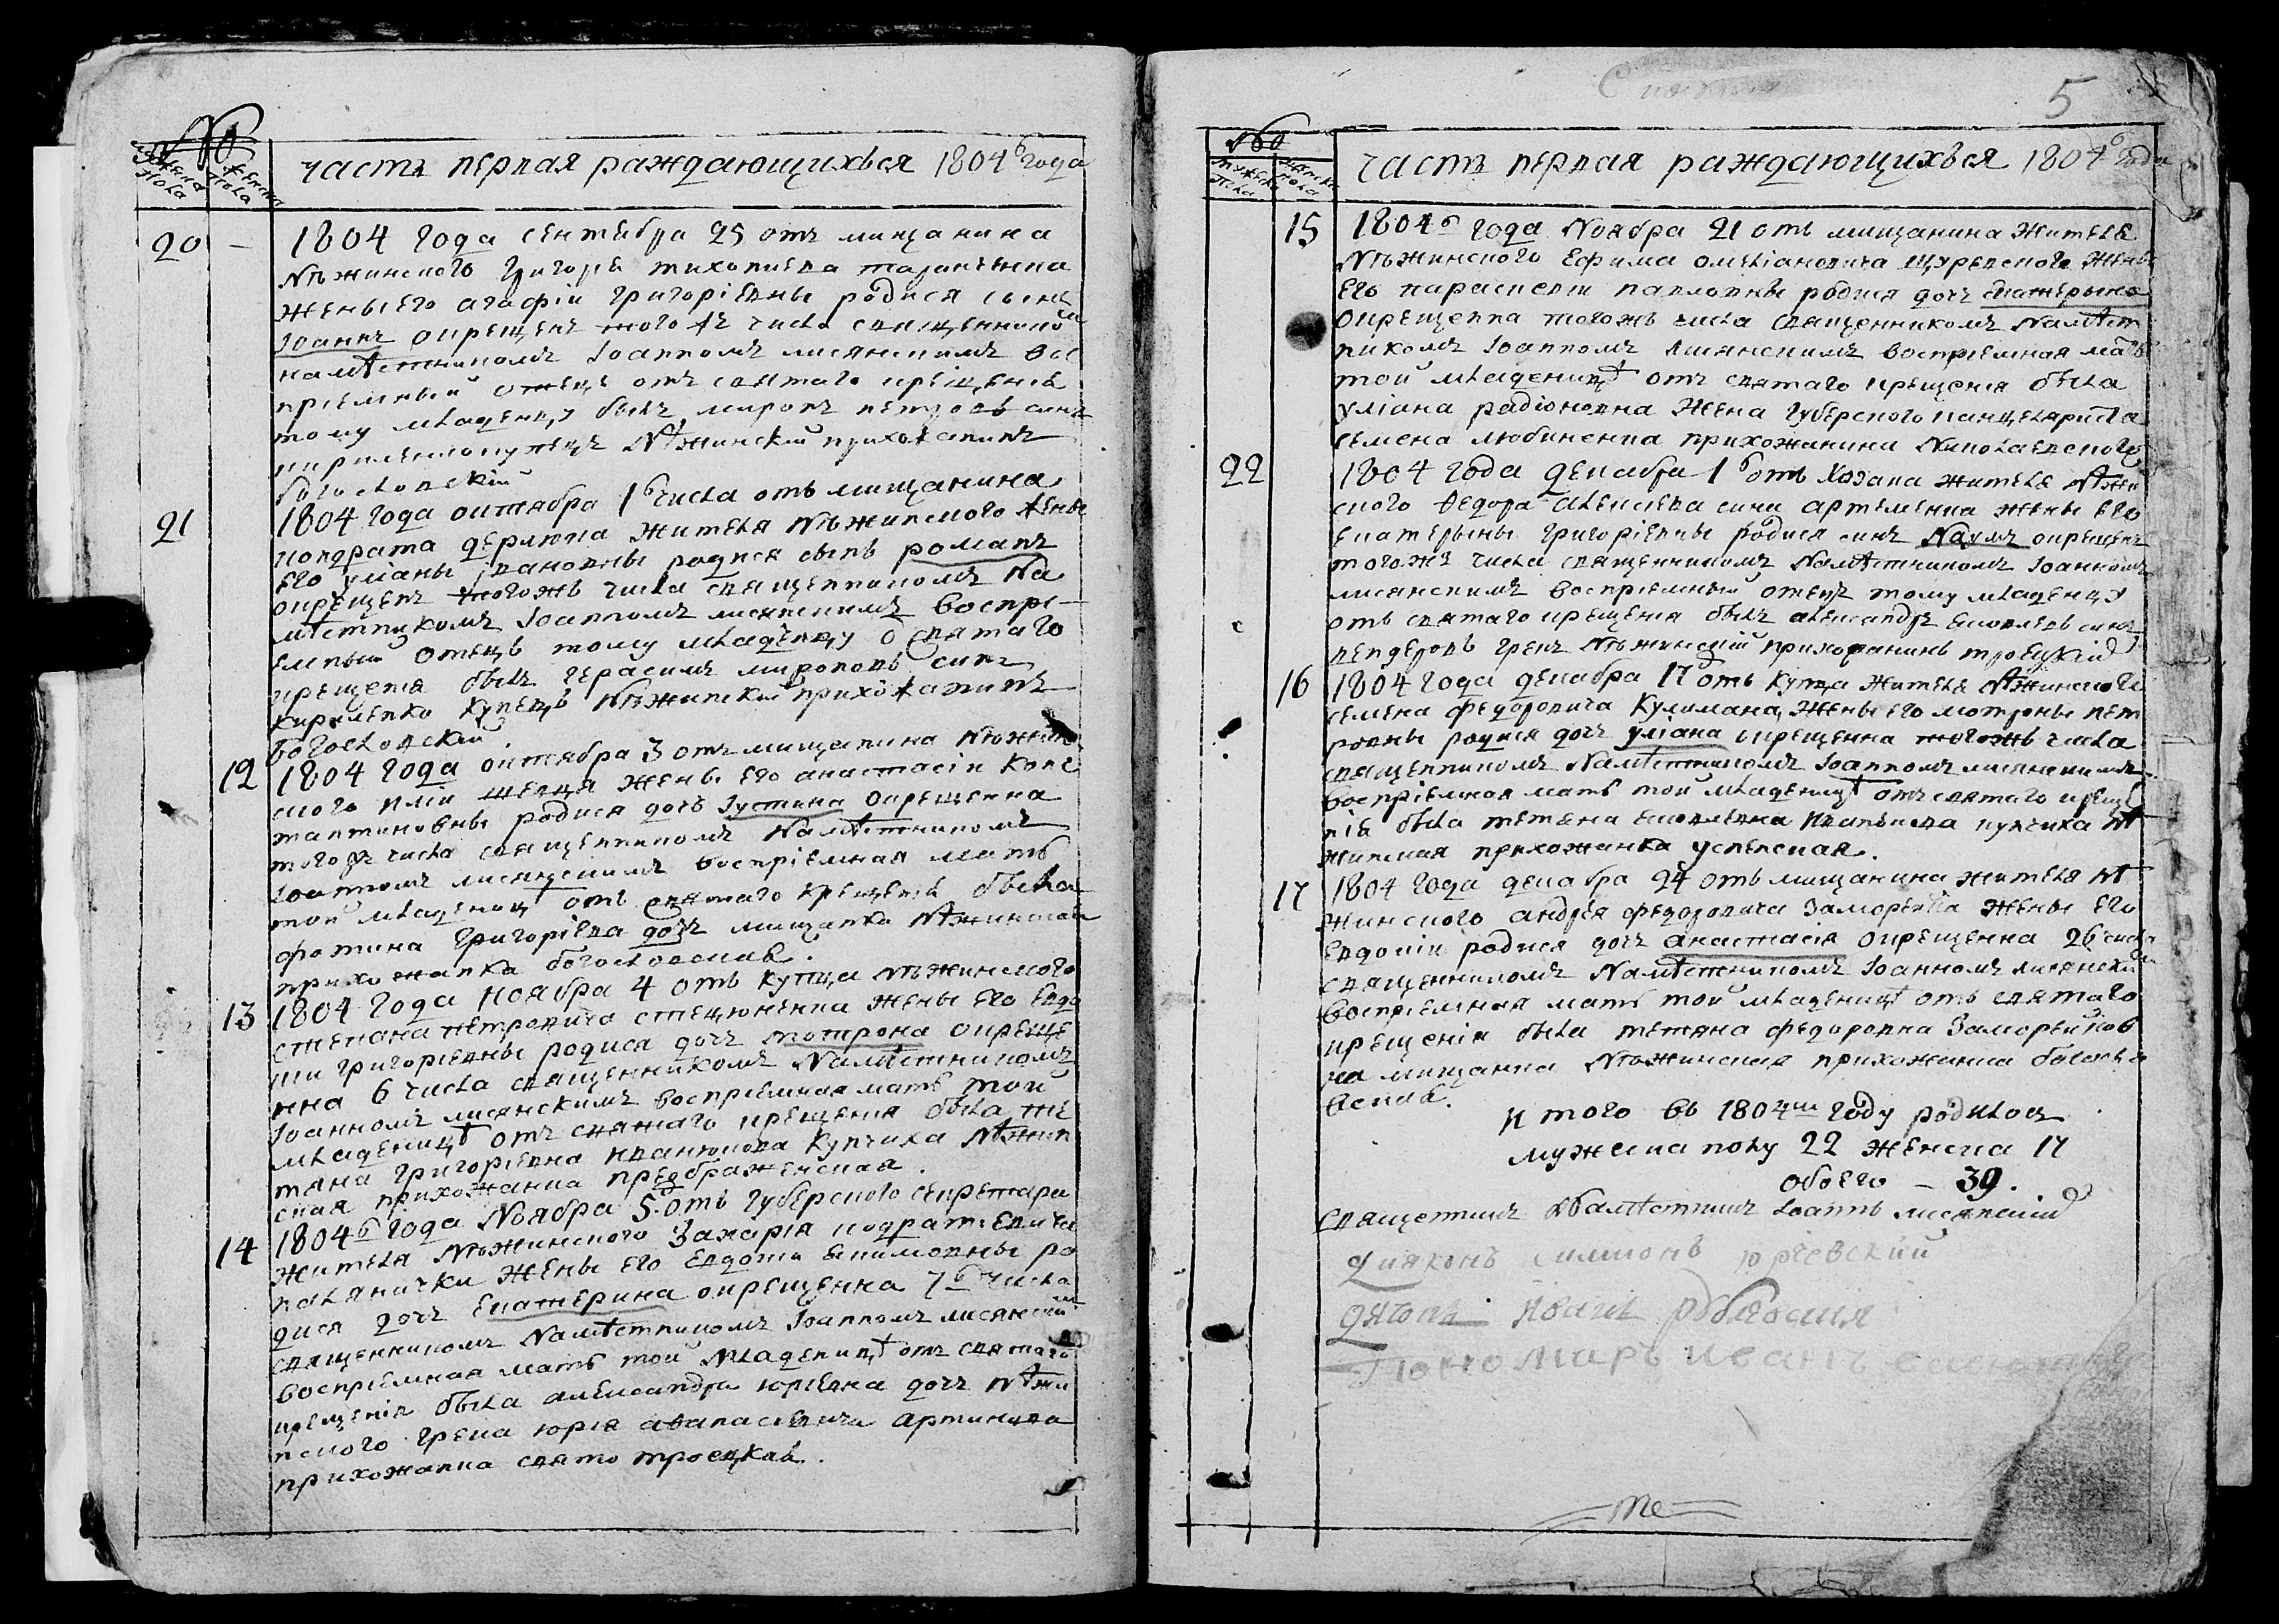 №
мужеска пола женска пола
часть первая раждающихъся 1804го года
20 –
1804 года сентября 25 отъ мищанина
Нѣжинского Григорія
жены его агафіи григоріевны родися сынъ
Іоаннъ окрещенъ того ж числа священникомъ
намѣстникомъ Іоанномъ лисянскимъ вос
пріемный отецъ отъ святаго крещенія
тому младенцу былъ миронъ петровъ синъ
кириленко купецъ Нѣжинскій прихожанинъ
богословскій
21
1804 года октября 1го числа отъ мищанина
кондрата дерлюка жителя Нѣжинского жены
его уліаны івановны родися сынъ романъ
окрещенъ тогожъ числа священникомъ На
мѣстникомъ Іоанномъ лисянскимъ воспрі
емный отецъ тому младенцу о святаго
крещенія былъ герасимъ мироновъ синъ
кириленко купецъ Нѣжинскій прихожанинъ
богословскій.
12
1804 года октября 3 отъ мищанина Нѣжин
ского иліи шевця жены его анастасіи конс
тантиновны родися дочъ Іустина окрещенна
того жъ числа священникомъ Намѣстникомъ
Іоанномъ лисянскимъ воспріемная мать
той младеницѣ отъ святаго крещенія была
фотина григоріева дочъ мищанка Нѣжинская
прихожанка богословская.
13
1804 года ноября 4 отъ купца Нѣжинского
степана петровича стецюненка жены его Евдо
кіи григоріевны родися дочъ мотрона окреще
нна 6 числа священникомъ Намѣстникомъ
Іоанномъ лисянскимъ воспріемная мать той
младеницѣ отъ святаго крещенія была те
тяна григоріевна иванюкова купчиха Нѣжин
ская прихожанка преображенская.
14
1804го года Ноября 5 отъ губерского секретара
жителя Нѣжинского Захарія кодратіевича
палянички жены его Евдокіи Екимовны ро
дися дочъ Екатерина окрещенна 7го числа
священникомъ Намѣстникомъ Іоанномъ лисянским
воспріемная мать той младеницѣ отъ святаго
крещенія была александра юріевна дочъ Нѣжи
нского грека юрія аванасіевича
прихожанка святотроецкая.
5
№
мужеска пола женска пола
часть первая раждающихъся 1804го года
15
1804го года Ноября 21 отъ мищанина жителя
Нѣжинского Ефима омеліановича щуревского жены
его параскевіи павловны родися дочъ Екатерына
окрещенна тогожъ числа священникомъ Намѣст
никомъ Іоанномъ лисянскимъ воспріемная мать
той младеницѣ отъ святаго крещенія была
уліана радіоновна жена губерского канцеляриста
семена любиненка прихожанини Николаевского
22
1804 года декабря 1го отъ козака жителя Нѣжи
ского Ѳедора алексіева сина артеменка жены его
Екатерыны григоріевны родися синъ Наумъ окрещенъ
тогожъ числа священникомъ Намѣстникомъ Іоанномъ
лисянскимъ воспріемный отецъ тому младенцу
отъ святаго крещенія былъ александръ Яковлевъ синъ
грекъ Нѣжинскій прихожанинъ троецкій
16
1804 года декабря 17го отъ купца жителя Нѣжинского
семена федоровича Кулимана, жены его мотроны пет
ровны родися дочъ уліана крещенна тогожъ числа
священникомъ Намѣстникомъ Іоанномъ лисянскимъ.
воспріемная мать той младеницѣ отъ святаго креще
нія была тетяна Яковлевна купчиха Нѣ
жинская прихожанка успенская.
17
1804 года декабря 24 отъ мищанина жителя Нѣ
жинского андрея федоровича Заморейка жены его
Евдокіи родися дочъ анастасія окрещенна 26 числа
священникомъ Намѣстникомъ Іоанномъ лисянским
воспріемная мать той младеницѣ отъ святаго
крещенія была тетяна федоровна Заморейков
на мищанка Нѣжинская прихожанка богосло
вская.
И того въ 1804м году родилось
мужеска полу 22 женска 17
обоего – 39.
священникъ Намѣстникъ Іоаннъ лисянский
Дияконъ симионъ юрчевский
дячокъ Иванъ
Пономаръ иванъ